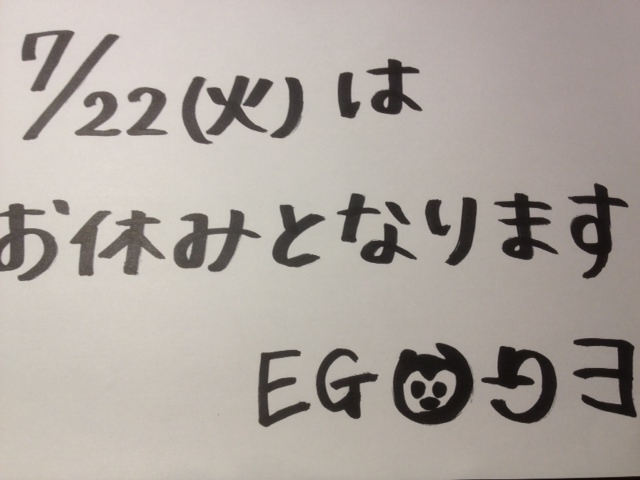 7/22(火)は
お休みとなります
EG